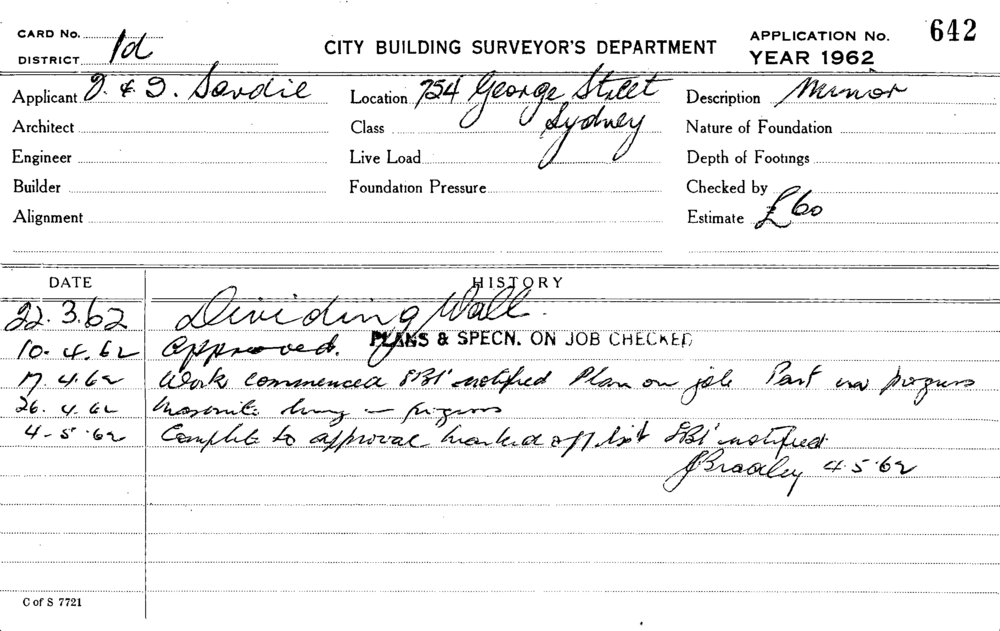 CARD No.
DISTRICT 1d
CITY BUILDING SURVEYOR'S DEPARTMENT
APPLICATION No. 642
YEAR 1962
Applicant J. & J. Savdie
Location 754 George Street
Sydney
Description Minor
Architect
Class
Nature of Foundation
Engineer
Live Load
Depth of Footings
Builder
Foundation Pressure
Checked by
Alignment
Estimate £60
DATE HISTORY
22.3.62 Dividing Wall.
10.4.62 Approved. PLANS & SPECN. ON JOB CHECKED
17.4.62 Work commenced notified Plan on job Part in progress
26.4.62 Masonite lining in progress
4-5-62 Complete to approval marked off list notified
JBradley 4.5.62
C of S 7721